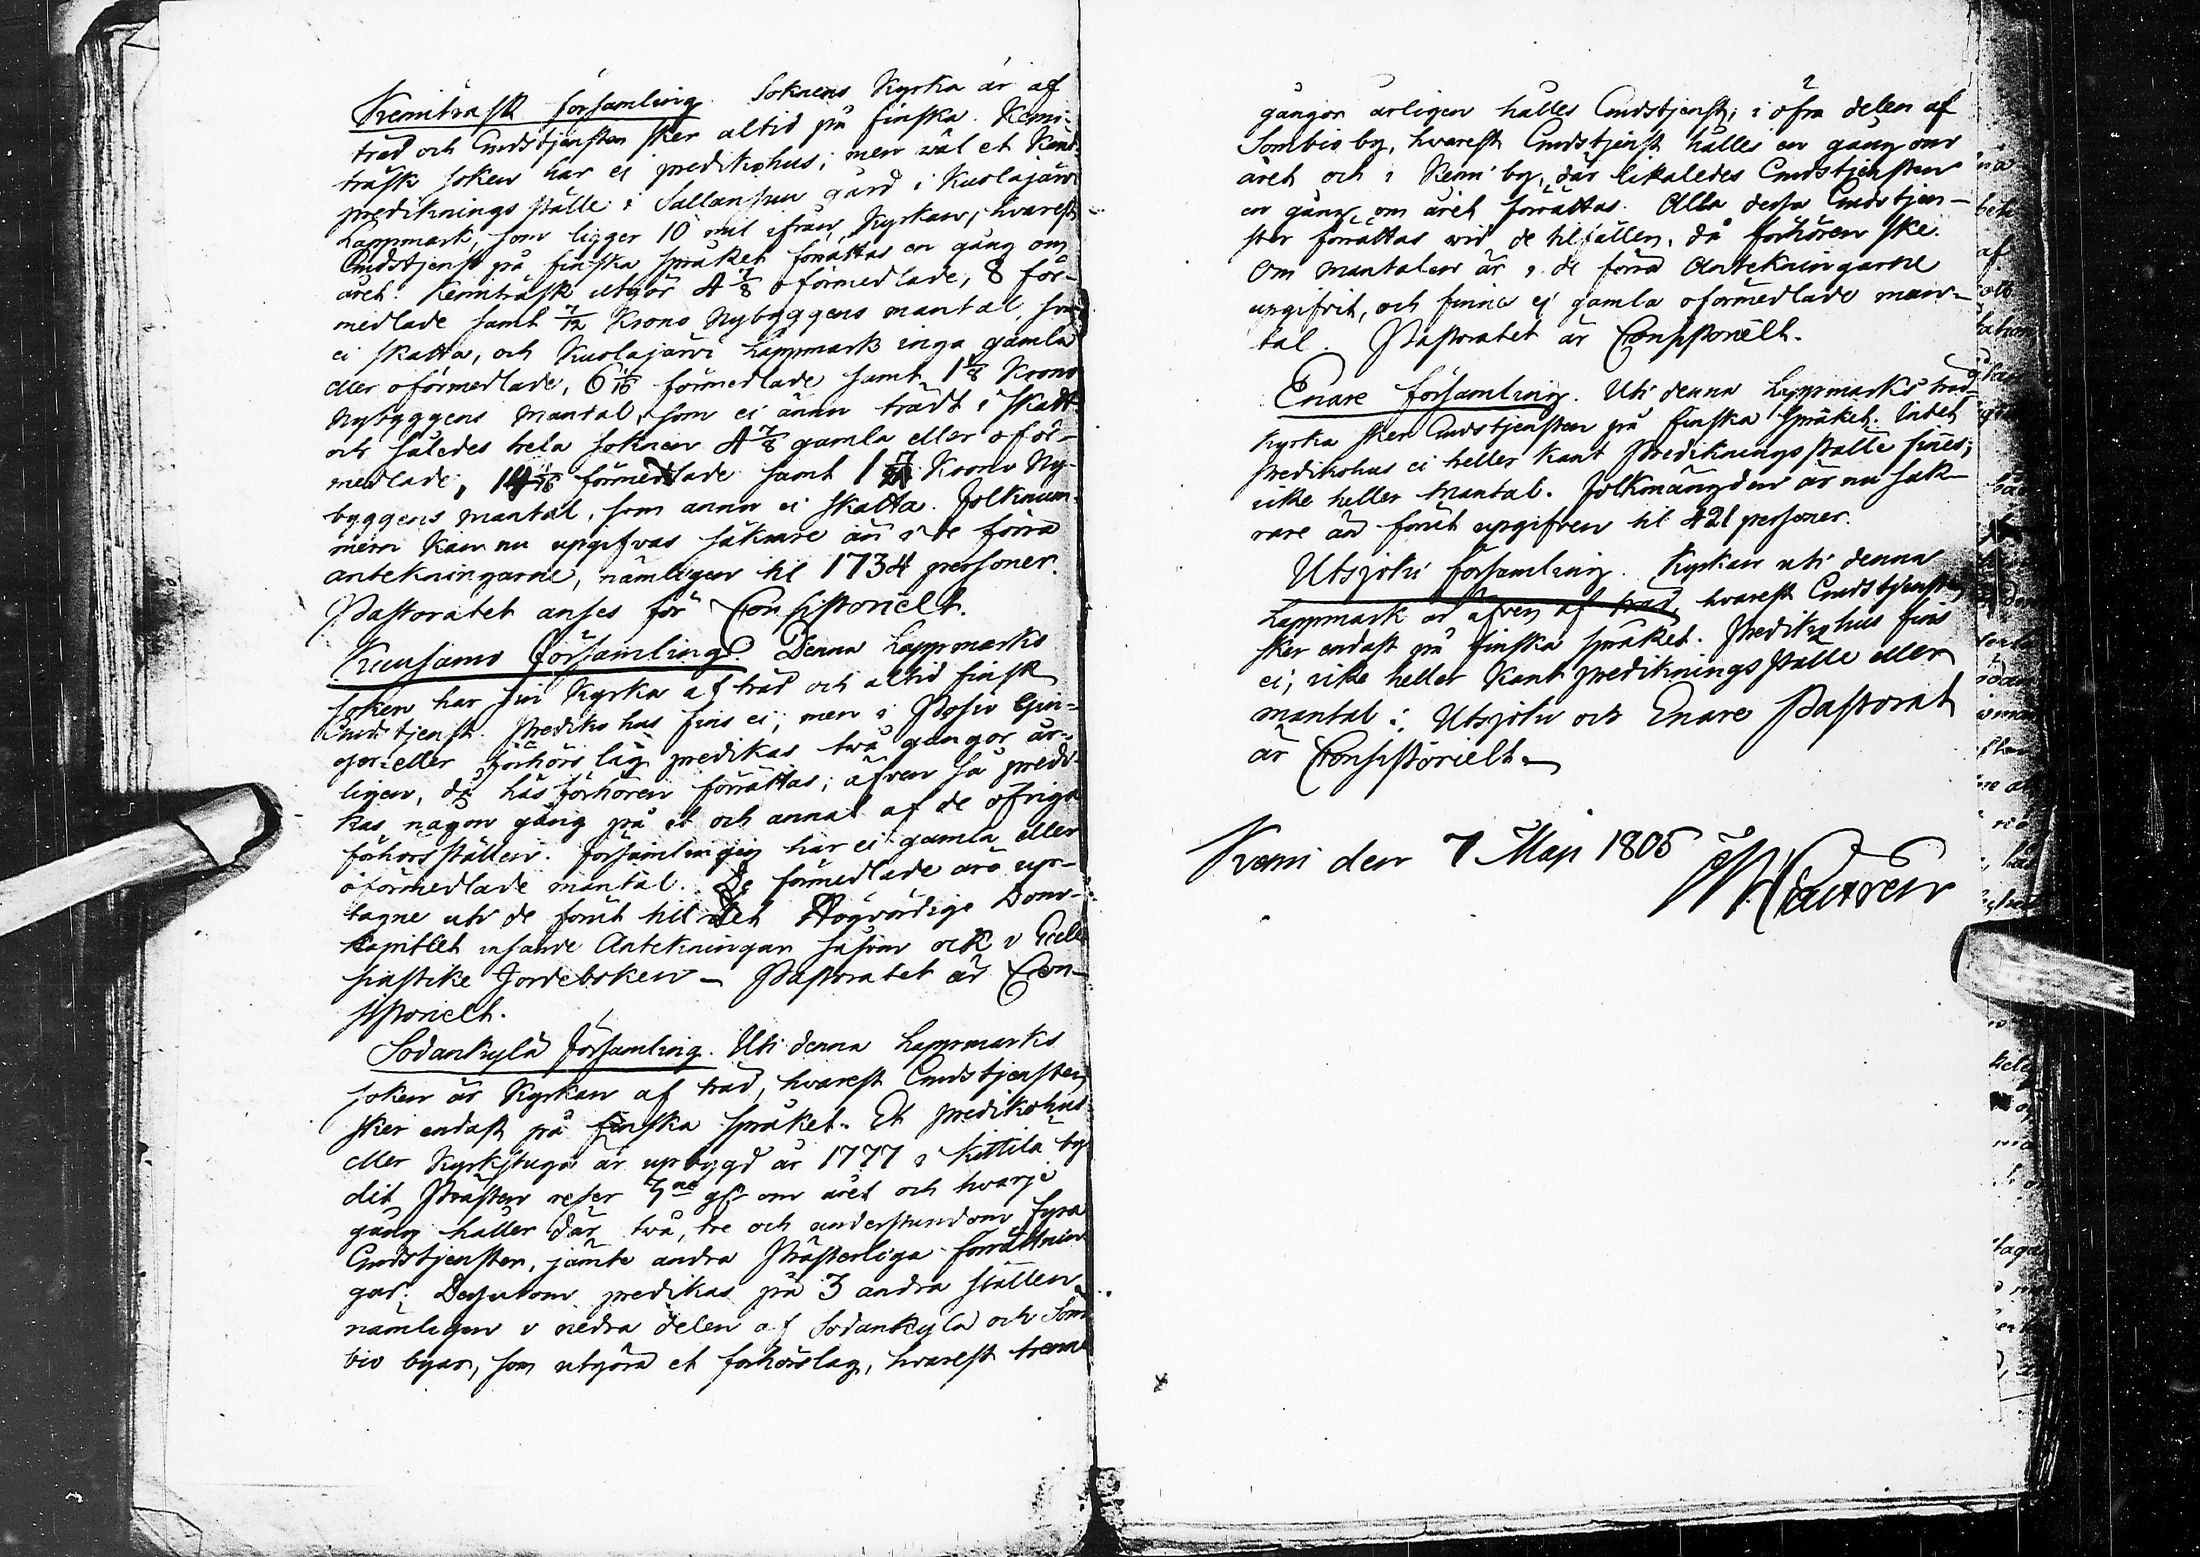 Kemiträsk församling. Soknens Kyrka är af
träd och Gudstjensten sker altid på finska. Kemi-
träsk soken har ej predikohus; men väl et
predikningsställe i Sallansuu gård i Kuolajärvi
Lappmark, som ligger 10 mil ifrån Kyrkan, hvarest
Gudstjenst på finska språket förrättas en gång om
året. Kemiträsk utgör 4 7/8 oförmedlade, 8 för-
medlade samt 7/12 Krono Nybyggens mantal, som
ei skatta, och Kuolajärvi Lappmark inga gamla
eller oförmedlade, 6 1/16 förmedlade samt 1 1/8 Krono
Nybyggens mantal, som ei ännu trädt i skatt
och således hela soknen 4 7/8 gamla eller oför-
medlade, 14 1/16 förmedlade samt 1 Krono Ny-
byggens mantal, som ännu ei skatta. Folknum-
mern kan nu upgifvas säkrare än i de förra
antekningarne, nämligen til 1734 personer.
Pastoratet anses för Consistorielt.
Kuusamo församling. Denna Lappmarks
soken har sin Kyrka af träd och altid finsk
Gudstjenst. Prediko hus fins ei; men i Posio
eller förhörs lag predikas två gångor år-
ligen, då hus förhören förrättas; äfven så predi-
kas någon gång på et och annat af de öfriga
förhörsställen. Församlingen har ei gamla eller
oförmedlade mantal. De förmedlade äro up-
tagne uti de förut till Det Högvördige Dom-
kapitlet insände Antekningar såsom ock i Eccle
siastike Jordeboken – Pastoratet är Con-
sistorielt.
Sodankylä församling. Uti denna Lappmarks
soken är Kyrkan af träd, hvarest Gudstjensten
sker endast på finska språket. Et predikohus
eller Kyrkstuga är upbygd år 1777 i Kittilä by
dit Prästen reser 3ne gr om året och hvarje
gång håller där två, tre och understundom fyra
Gudstjenster, jämte andra Prästerliga förrättnin
gar. Dessutom predikas på 3 andra ställen,
nämligen i nedra delen af Sodankylä och Som
bio byar, som utgöra et förhörslag, hvarest trenne
gångor årligen hålles Gudstjenst; i öfra delen af
Sombio by, hvarest Gudstjenst hålles en gång om
året och i Kemi by, där likaledes Gudstjensten
en gång om året förrättas. Alla dessa Gudstjen-
ster förrättas vid de tilfällen, då förhören ske.
Om Mantalen är i de förra Antekningarne
upgifvit, och finnas ej gamla oförmedlade man-
tal. Pastoratet är Consistorielt.
Enare församling. Uti denna Lappmarks träd
kyrka sker Gudstjensten på finska språket. Intet
predikohus ei heller känt Predikningsställe fines;
icke heller mantal. Folkmängden är nu säk-
rare än förut upgifven til 421 personer.
Utsjoki församling. Kyrkan uti denna
Lappmark är äfven af träd, hvarest Gudstjensten
sker endast på finska språket. Predikohus fins
ei, icke heller känt predikningsställe eller
mantal: Utsjoki och Enare Pastorat
är Consistorielt.
Kemi den 7 Maji 1806